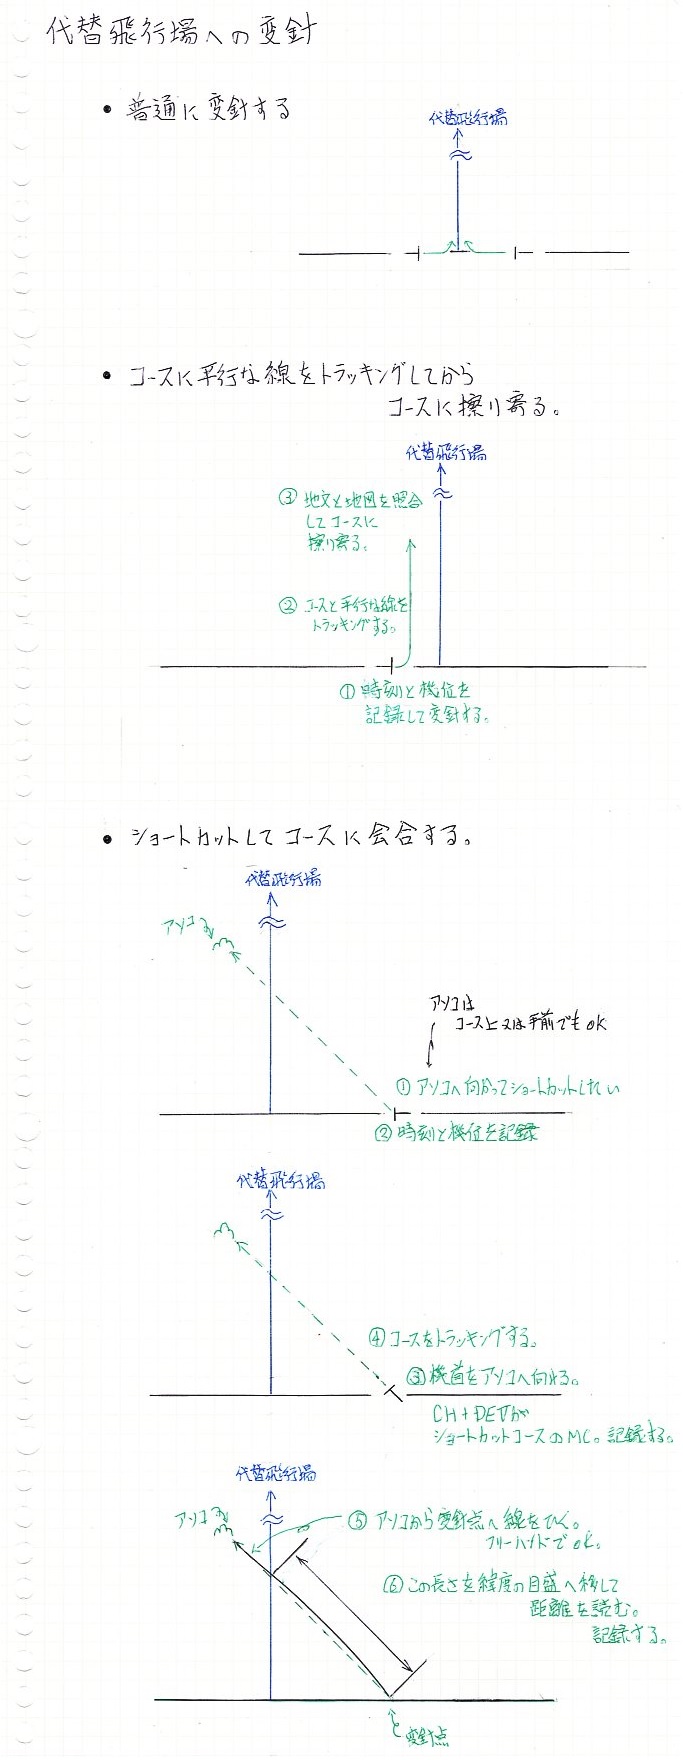 代替飛行場への変針
• 普通に変針する
代替飛行場
• コースに平行な線をトラッキングしてから
コースに擦り寄る。
代替飛行場
③ 地文と地図を照合
してコースに
擦り寄る。
② コースと平行な線を
トラッキングする。
① 時刻と機位を
記録して変針する。
• ショートカットしてコースに会合する。
代替飛行場
アソコ
アソコは
コース上又は手前でもOK
① アソコへ向かってショートカットしたい
② 時刻と機位を記録
代替飛行場
④ コースをトラッキングする。
③ 機首をアソコへ向ける。
CH+DEVが
ショートカットコースのMC。記録する。
代替飛行場
アソコ
⑤ アソコから変針点へ線をひく。
フリーハンドでOK。
⑥ この長さを緯度の目盛へ移して
距離を読む。
記録する。
変針点